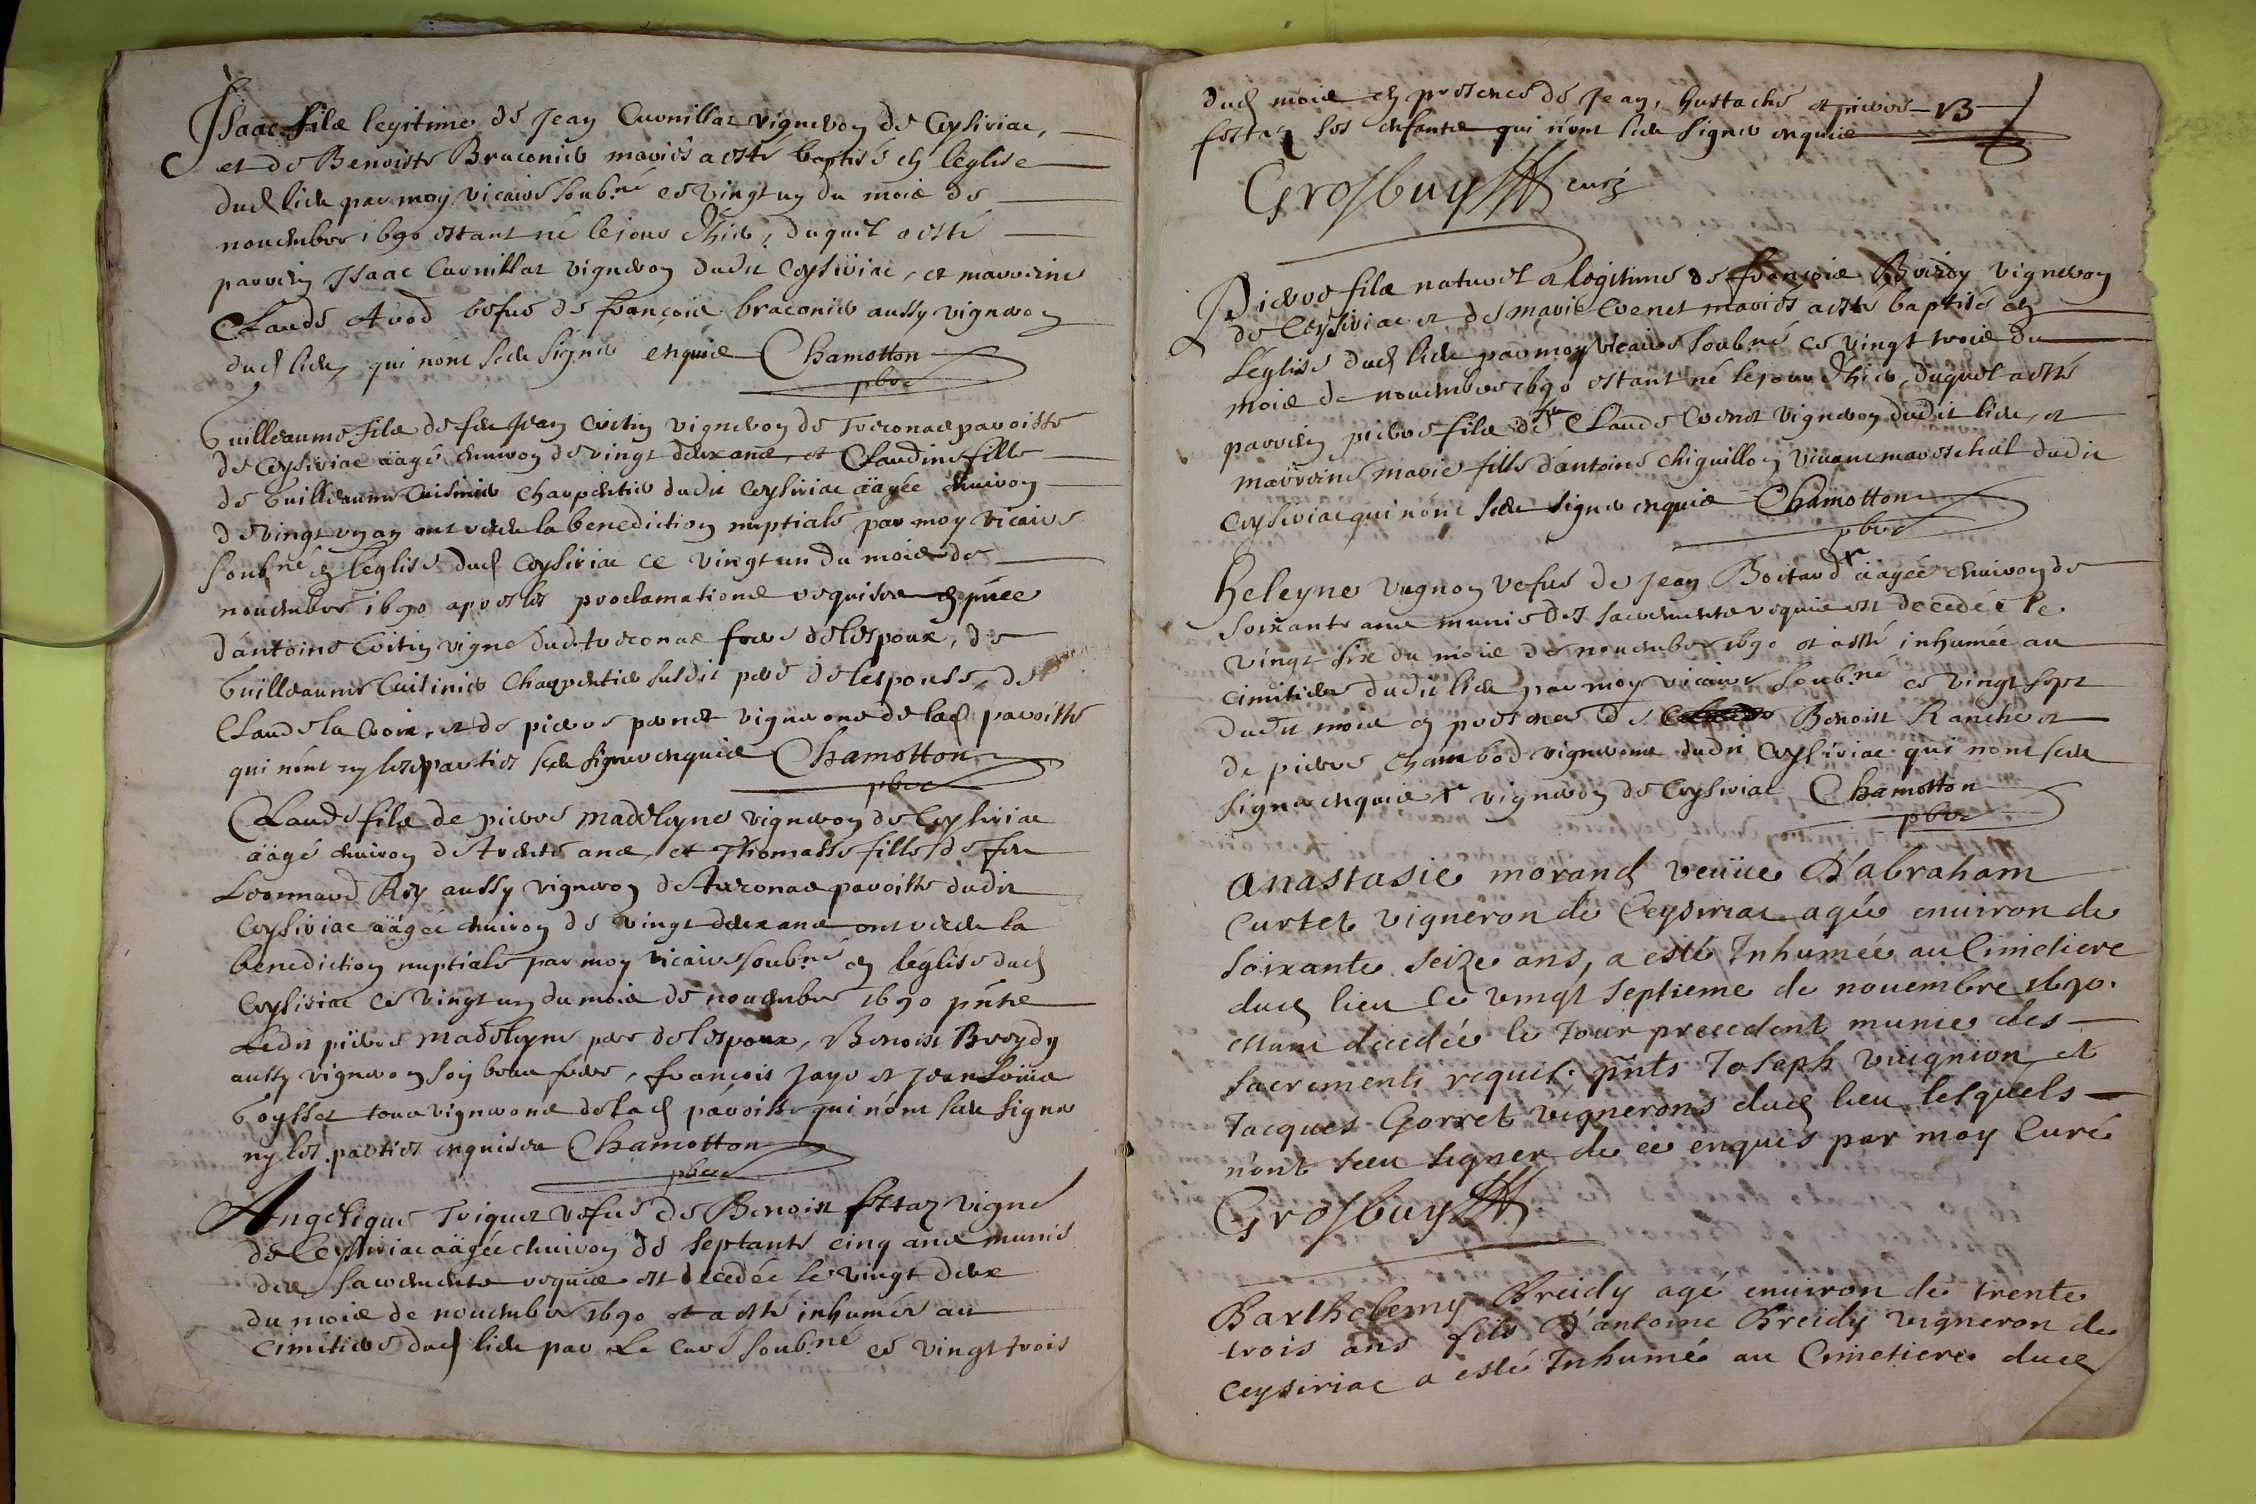 Isaac fils legitime de Jean Curnillat vigneron de Ceysiriac,
et de Benoiste Braconier mariés a esté baptisé en l'eglise
dud lieu par moy vicaire soub.né ce vingt un du mois de
nouembre 1690 estant né le jour d'hier, duquel a esté
parrein Isaac Curnillat vigneron dudit Ceysiriac, et marreine
Claude Arod vefue de françois braconier aussy vigneron
dud lieu, qui n'ont sceu signer enquis Chamotton
pbre
Guilleaume fils de feu Jean Coitin vigneron de Treconas paroisse
de Ceysiriac aagé enuiron de vingt deux ans, et Claudine fille
de Guilleaume Cuisinier charpentier dudit Ceysiriac aagée enuiron
de vingt un an ont receu la benediction nuptiale par moy vicaire
soub.né en l'eglise dud Ceysiriac ce vingt un du mois de
nouembre 1690 apres les proclamations requises en pñce
d'antoine Coitin vigne. dud treconas frere de l'espoux, de
Guilleaume Cuisinier charpentier susdit pere de lespouse, de
Claude la Croix, et de pierre pernet vignerons de lad paroisse
qui n'ont ny les parties sceu signer enquis Chamotton
pbre
Claude fils de pierre Madeleyne vigneron de Ceysiriac
aagé enuiron de trente ans, et Thomasse fille de feu
Leonnard Roy aussy vigneron de treconas paroisse dudit
Ceysiriac aagée enuiron de vingt deux ans ont receu la
benediction nuptiale par moy vicaire soub.né en l'église dud
Ceysiriac ce vingt un du mois de nouembre 1690 pñts
Ledit pierre Madeleyne pere de l'espoux, Benoist Breydy
aussy vigneron son beau frere, françois Jayr et Jean Louis
Goysset tous vignerons de lad paroisse qui n'ont sceu signer
ny les parties enquises Chamotton
pbre
Angelique Triquet vefue de Benoist fettaz vigne.
de Ceysiriac aagée enuiron de septante cinq ans munie
des sacrements requis est decedée le vingt deux
du mois de nouembre 1690 et a esté inhumée au
cimitiere dud lieu par Le curé soub.né ce vingt trois
dud mois en presence de Jean, Eustache et pierre
fettaz ses enfants qui n'ont sceu signer enquis
Grosbuy curé
Pierre fils naturel et legitime de françois Breidy vigneron
de Ceysiriac et de Marie Cœnet mariés a esté baptisé en
l'église dud lieu par moy vicaire soub.né ce vingt trois du
mois de nouembre 1690 estant né le jour d'hier, duquel a esté
parrein pierre fils de feu Claude Cœnet vigneron dudit lieu, et
marreine marie fille d'antoine chiguillon viuant mareschal dudit
Ceysiriac qui n'ont sceu signer enquis Chamotton
pbre
Heleyne Vugnon vefue de Jean Boitard x aagée enuiron de
soixante ans munie des sacrements requis est decedée le
vingt six du mois de nouembre 1690 et a esté inhumée au
cimitiere dudit lieu par moy vicaire soub.né ce vingt sept
dudit mois en presence de Benoist Ranche et
de pierre chambod vignerons dudit Ceysiriac qui n'ont sceu
signer enquis x vigneron de Ceysiriac Chamotton
pbre
Anastasie morand veüue D'abraham
Curtet vigneron de Ceysiriac agée enuiron de
soixante seize ans, a esté Inhumée au Cimetiere
dud lieu le vingt septieme de nouembre 1690.
estant decedée le Jour precedent munie des
sacrements requis; pñts Joseph vuignion et
Jacques Gorret vignerons dud lieu lesquels
n'ont sceu signer de ce enquis par moy Curé
Grosbuy
Barthelemy Breidy agé enuiron de trente
trois ans fils d'antoine Breidy vigneron de
Ceysiriac a esté Inhumé au Cimetiere dud